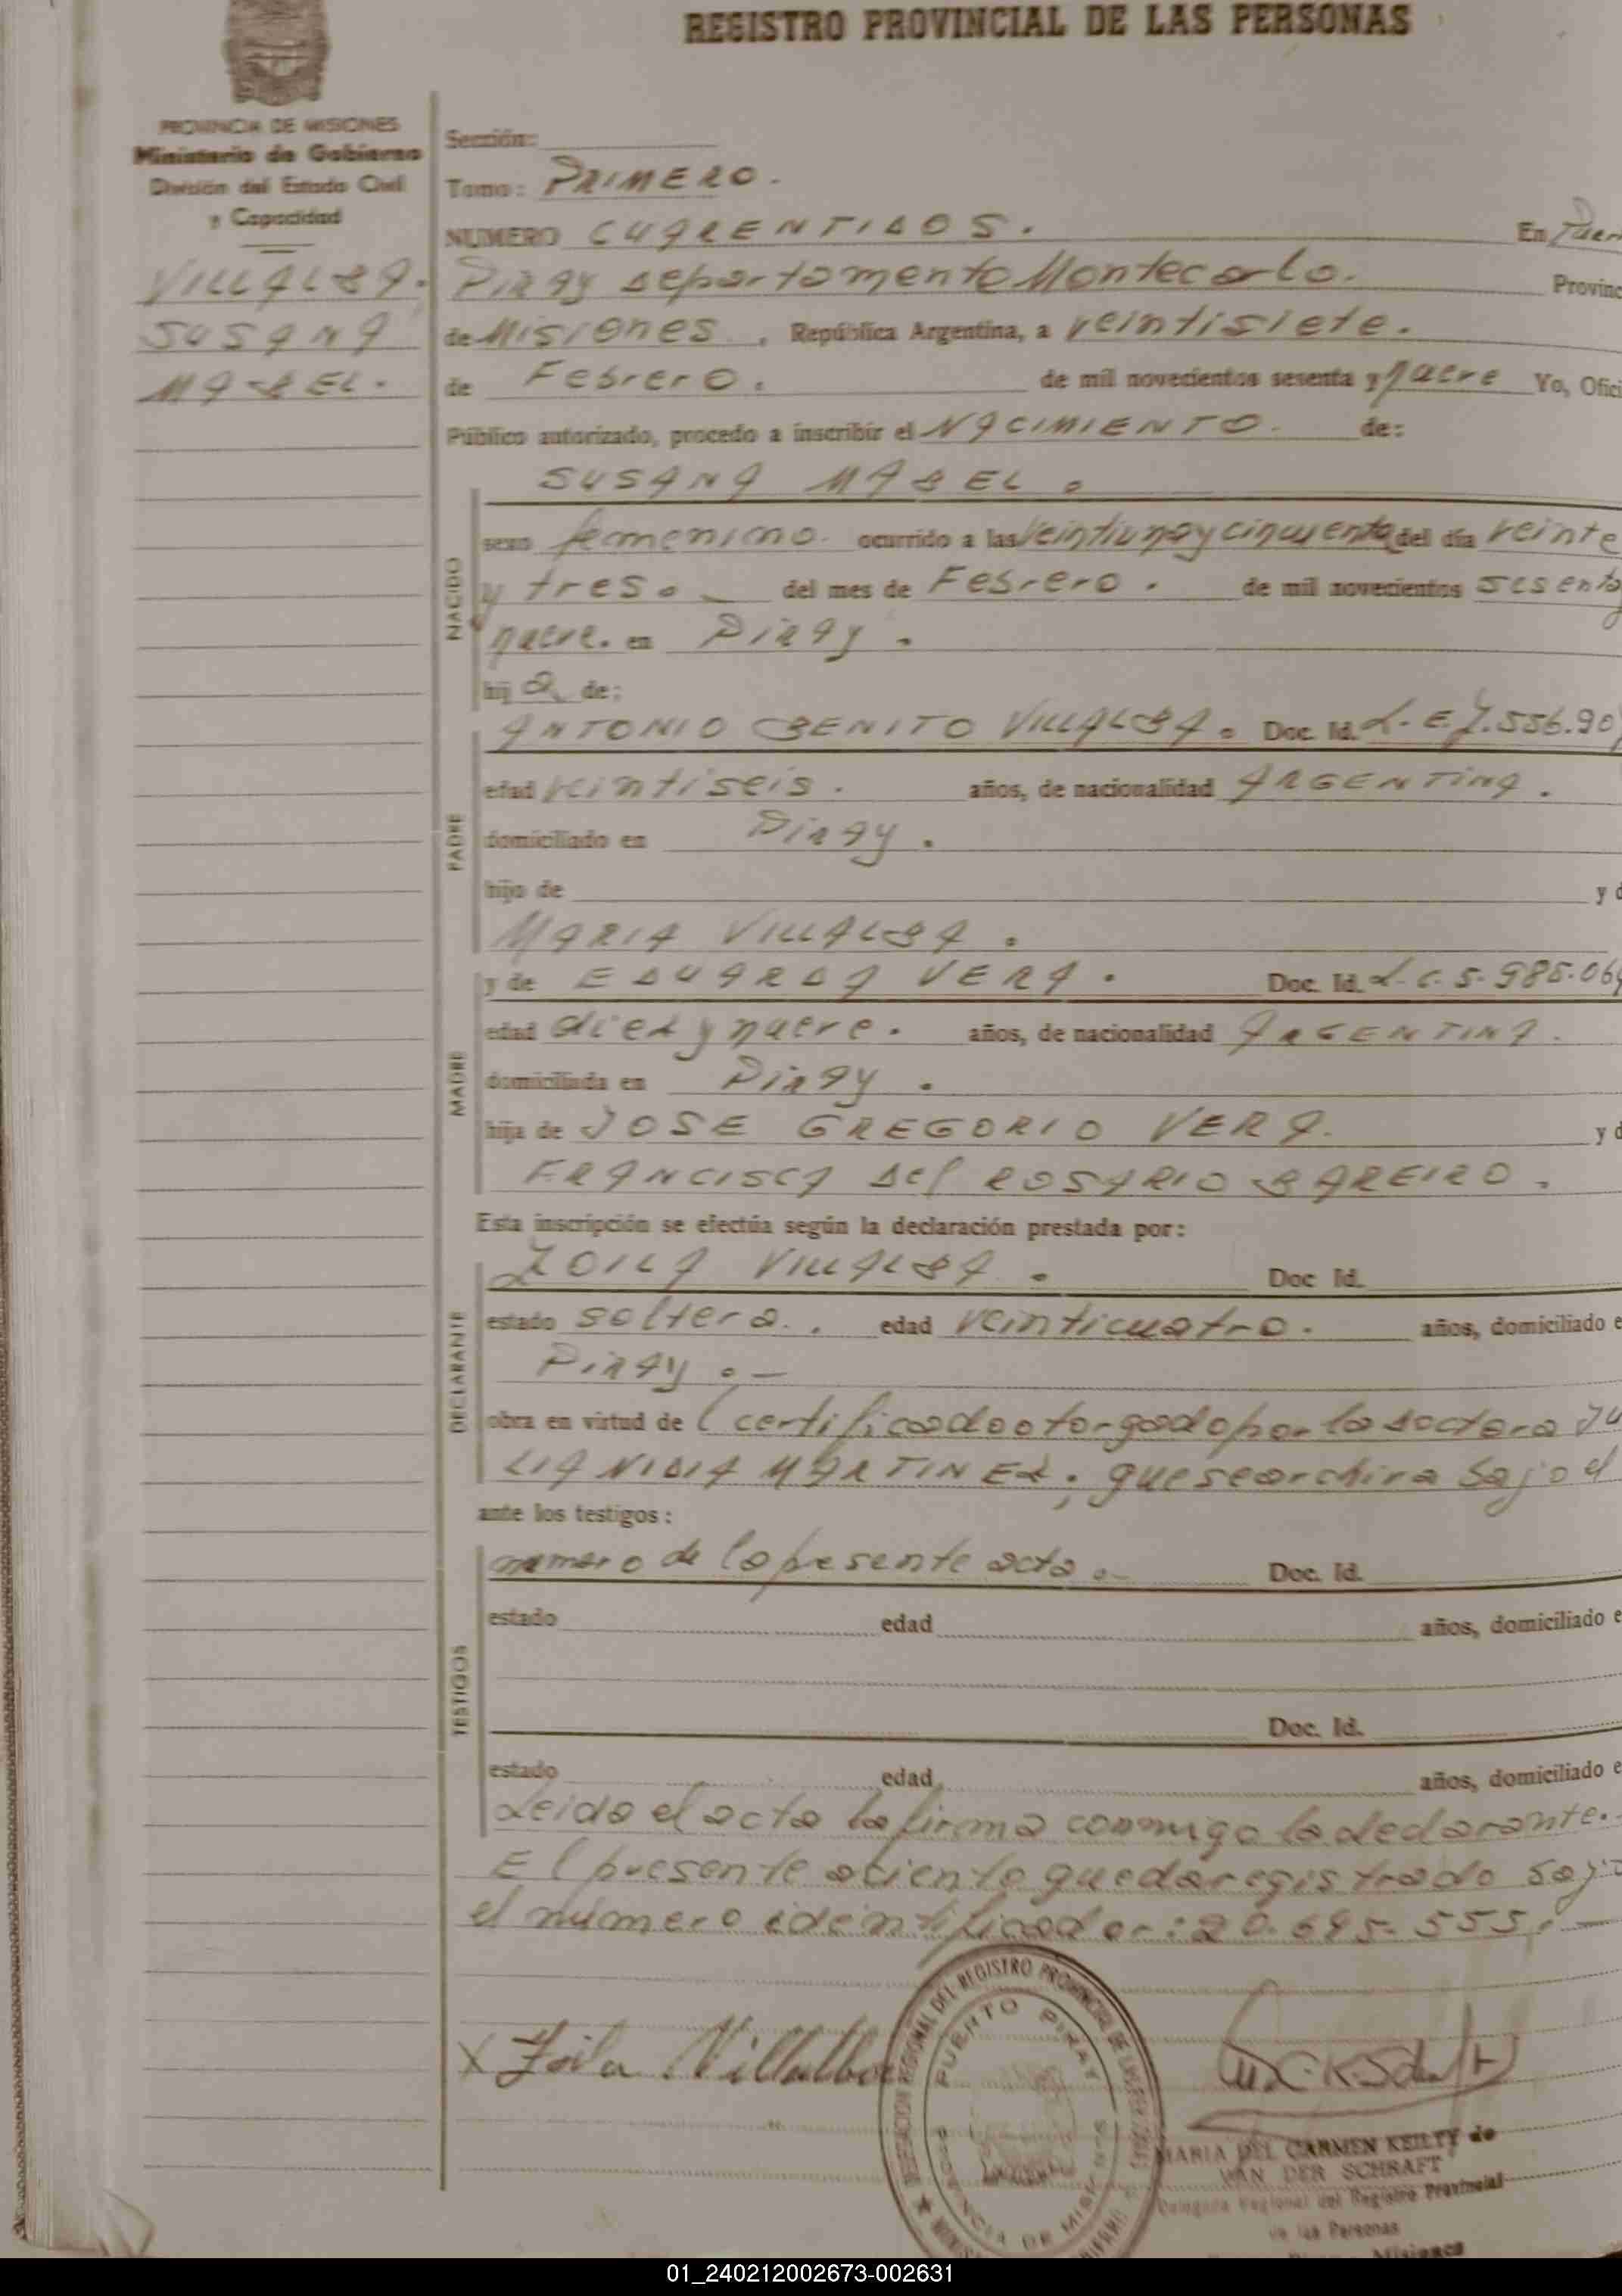 REGISTRO PROVINCIAL DE LAS PERSONAS
PROVINCIA DE MISIONES
Ministerio de Gobierno
División del Estado Civil
y Capacidad
VILLALBA.
SUSANA
MABEL.
Sección:
Tomo: PRIMERO.
NUMERO CUARENTIDOS. En Puer
Piray departamento Montecarlo. Provinc
de Misiones, República Argentina, a veintisiete.
de Febrero. de mil novecientos sesenta y nueve Yo, Ofici
Público autorizado, procedo a inscribir el NACIMIENTO. de:
SUSANA MABEL.
NACIDO
sexo femenino. ocurrido a las veintiuna y cincuenta del día veinte
y tres. del mes de Febrero. de mil novecientos sesenta y
nueve. en Piray.
hij a de:
PADRE
ANTONIO BENITO VILLALBA. Doc. Id. L.E. 7.556.90
edad veintiseis. años, de nacionalidad ARGENTINA.
domiciliado en Piray.
hijo de y d
MARIA VILLALBA.
MADRE
y de EDUARDA VERA. Doc. Id. L.C. 5.985.06
edad diez y nueve. años, de nacionalidad ARGENTINA.
domiciliada en Piray.
hija de JOSE GREGORIO VERA. y d
FRANCISCA del ROSARIO BAREIRO.
Esta inscripción se efectúa según la declaración prestada por:
DECLARANTE
ZOILA VILLALBA. Doc Id.
estado soltera. edad veinticuatro. años, domiciliado e
Piray.-
obra en virtud de certificado otorgado por la doctora JU
LIA NIDIA MARTINEZ; que se archiva bajo el
ante los testigos:
TESTIGOS
numero de la presente acta.- Doc. Id.
estado edad años, domiciliado e
Doc. Id.
estado edad años, domiciliado e
Leida el acta la firma conmigo la declarante.
El presente aciento queda registrado bajo
el número identificador: 20.695.555.-
x Zoila Villalba
DELEGACION REGIONAL DEL REGISTRO PROVINCIAL DE LAS PERSONAS
PUERTO PIRAY
PROVINCIA DE MISIONES
MARIA DEL CARMEN KEILTY de
VAN DER SCHRAFT
Delegada Regional del Registro Provincial
de las Personas
Misiones
01_240212002673-002631